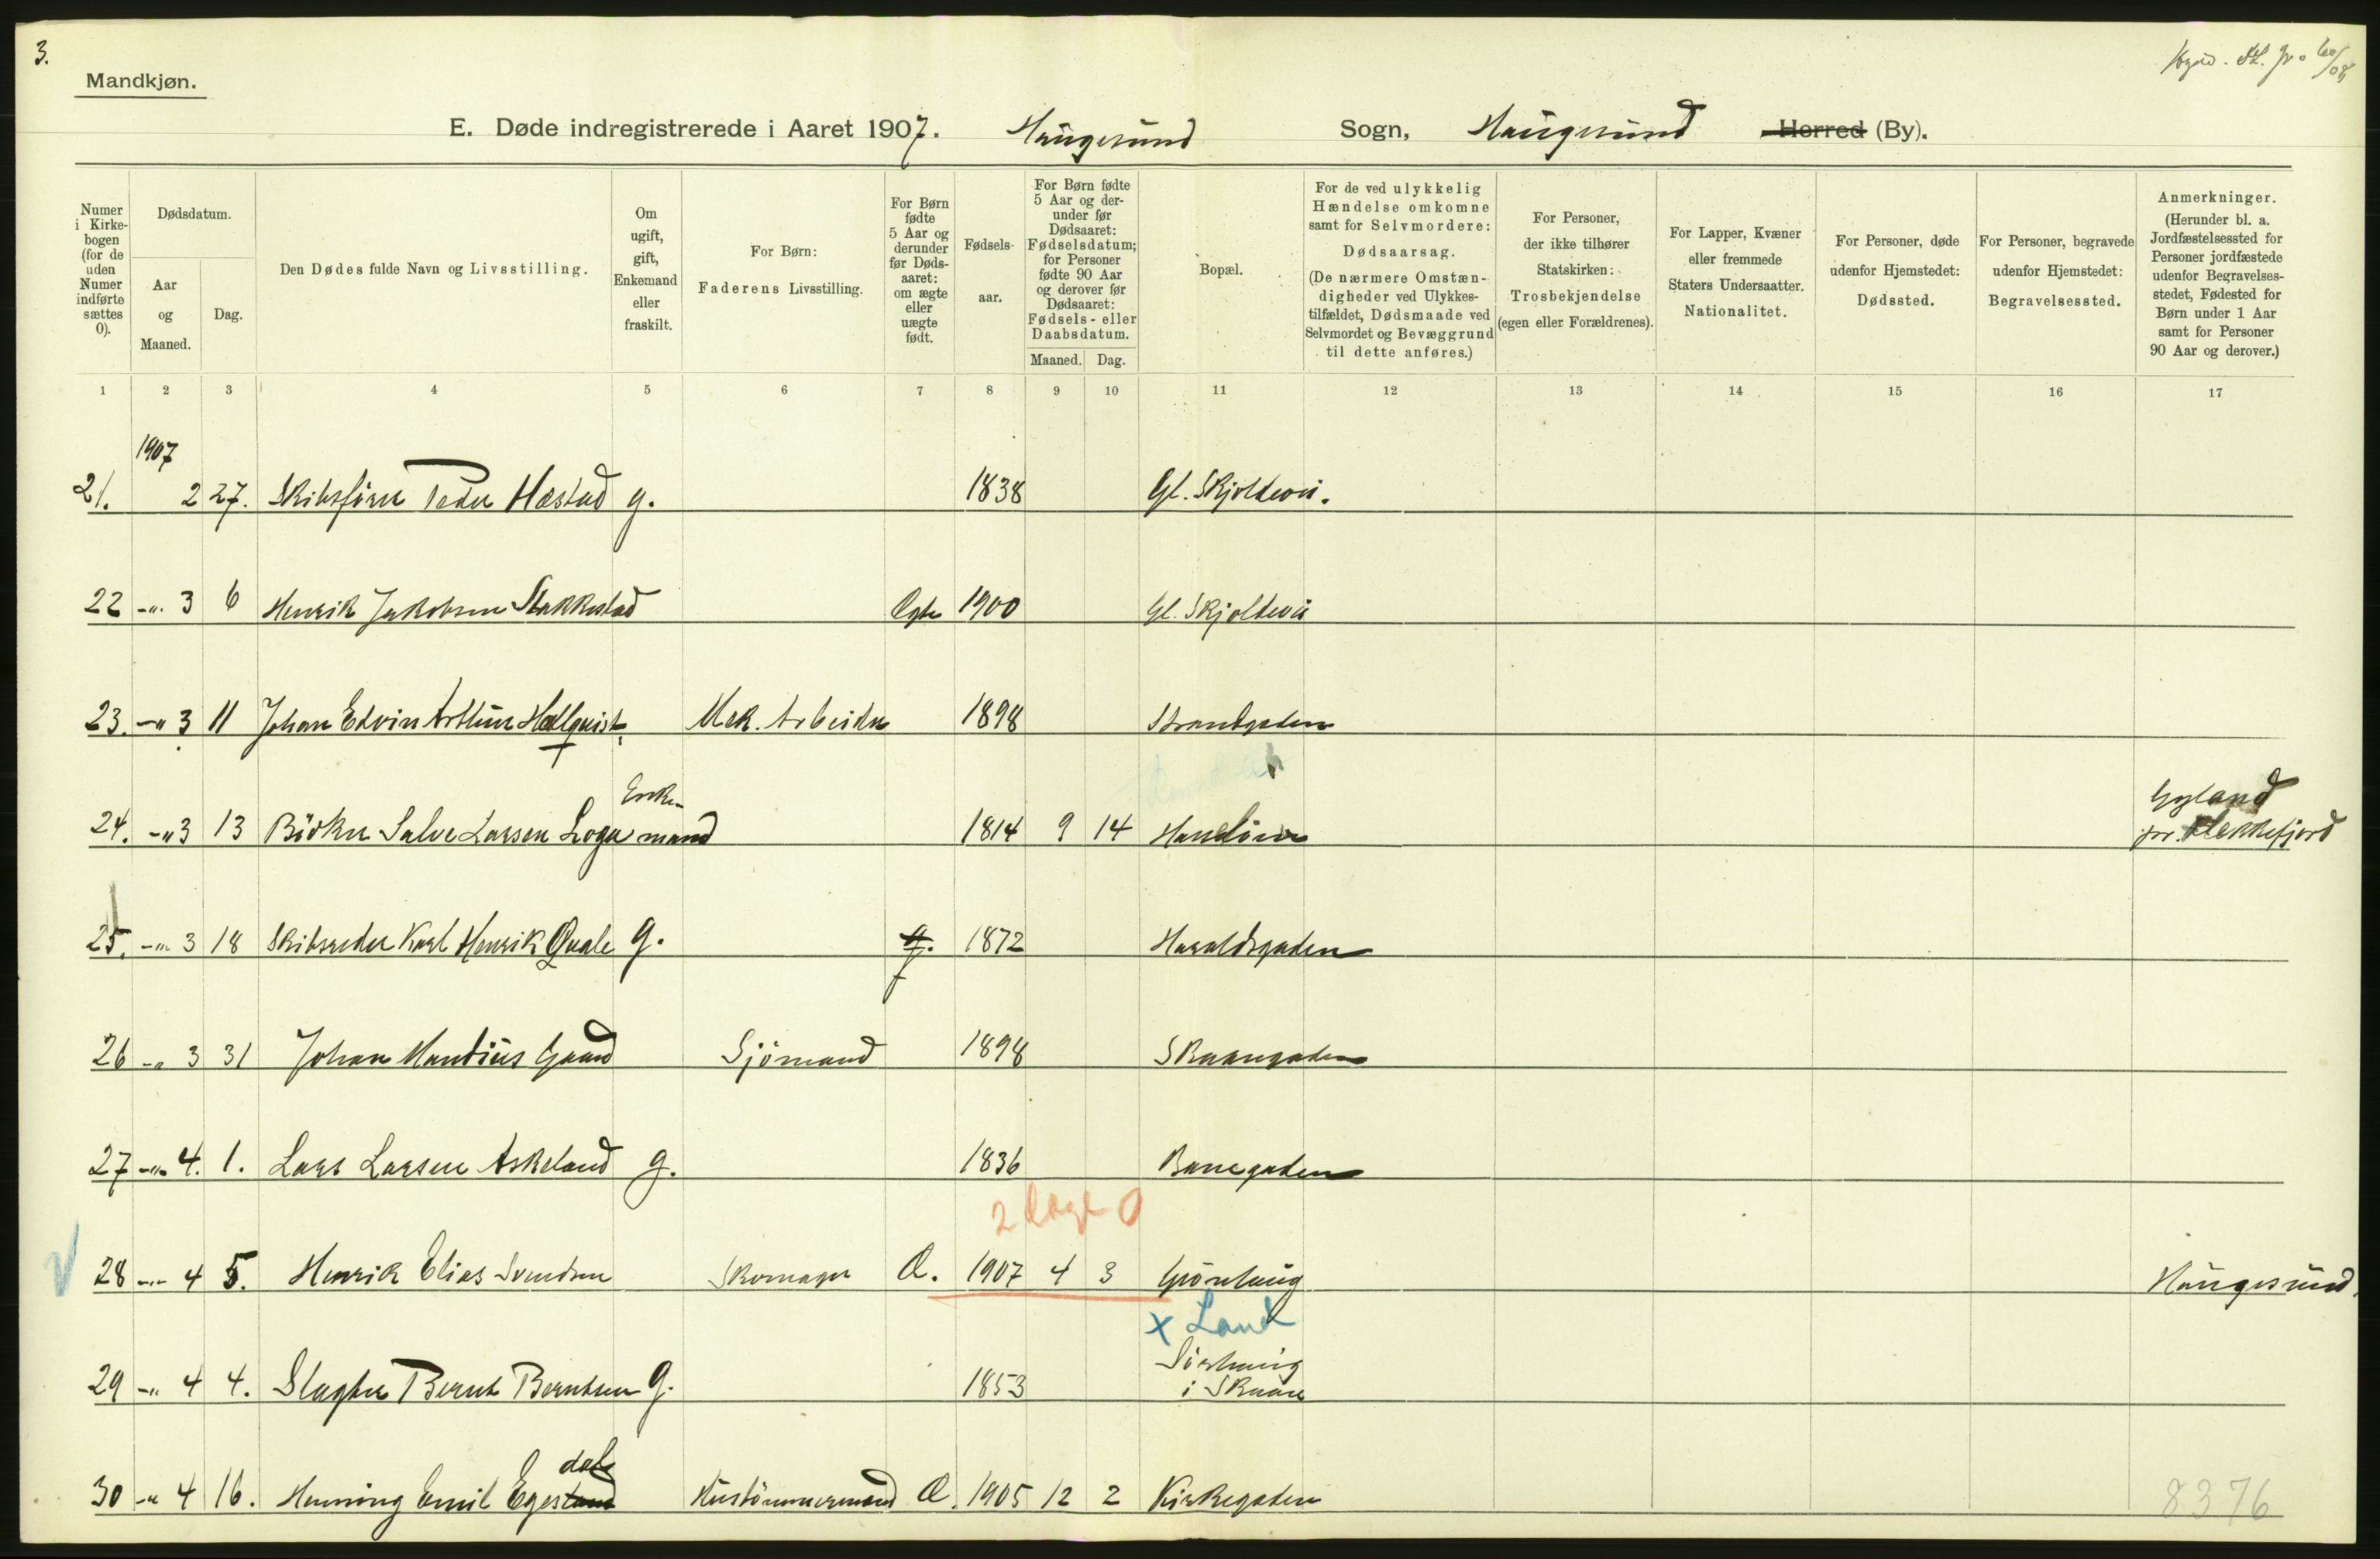 3.
Mandkjøn.
E. Døde indregistrerede i Aaret 1907. Haugesund Sogn, Haugesund Herred (By).
Numer i Kirke-bogen (for de uden Numer indførte sættes 0).
Dødsdatum.
Aar og Maaned.
Dag.
Den Dødes fulde Navn og Livsstilling.
Om ugift, gift, Enkemand eller fraskilt.
For Børn: Faderens Livsstilling.
For Børn fødte 5 Aar og derunder før Døds-aaret: om ægte eller uægte født.
Fødsels-aar.
For Børn fødte 5 Aar og der-under før Dødsaaret: Fødselsdatum; for Personer fødte 90 Aar og derover før Dødsaaret: Fødsels- eller Daabsdatum.
Maaned. Dag.
Bopæl.
For de ved ulykkelig Hændelse omkomne samt for Selvmordere: Dødsaarsag. (De nærmere Omstæn-digheder ved Ulykkes-tilfældet, Dødsmaade ved Selvmordet og Bevæggrund til dette anføres.)
For Personer, der ikke tilhører Statskirken: Trosbekjendelse (egen eller Forældrenes).
For Lapper, Kvæner eller fremmede Staters Undersaatter. Nationalitet.
For Personer, døde udenfor Hjemstedet: Dødssted.
For Personer, begravede udenfor Hjemstedet: Begravelsessted.
Anmerkninger. (Herunder bl. a. Jordfæstelsessted for Personer jordfæstede udenfor Begravelses-stedet, Fødested for Børn under 1 Aar samt for Personer 90 Aar og derover.)
1 2 3 4 5 6 7 8 9 10 11 12 13 14 15 16 17
1907
21. 2 27. Skibsfører Peder Hæstad g. 1838 Gl. Skjoldevei.
22 -"- 3 6 Henrik Jakobsen Stakkestad Ægte 1900 Gl. Skjoldevei
23. -" 3 11 Johan Edvin Arthur Hellquist Mek. Arbeider 1898 Strandgaden
24. -" 3 13 Bödker Salve Larsen Loga Enke-mand 1814 9 14 Gyland pr. Flekkefjord
25. -"- 3 18 Skibsreder Karl Henrik Qvale g. g. 1872 Haraldsgaden
26 -"- 3 31 Johan Mandius Gaard Sjömand 1898 Skaaregaden
27 -"- 4. 1. Lars Larsen Askeland g. 1836 Banegaden
2 dage 0
28 -"- 4 5. Henrik Elias Svendsen Skomager Æ. 1907 4 3 Grönhaug Haugesund.
x Land
29 -" 4 4. Slagter Bernt Berntsen g. 1853 Sörhaug i Skaare
30 -" 4 16. Henning Emil Egesland dal Hustömmermand Æ. 1905 12 2 Kirkegaden
8376